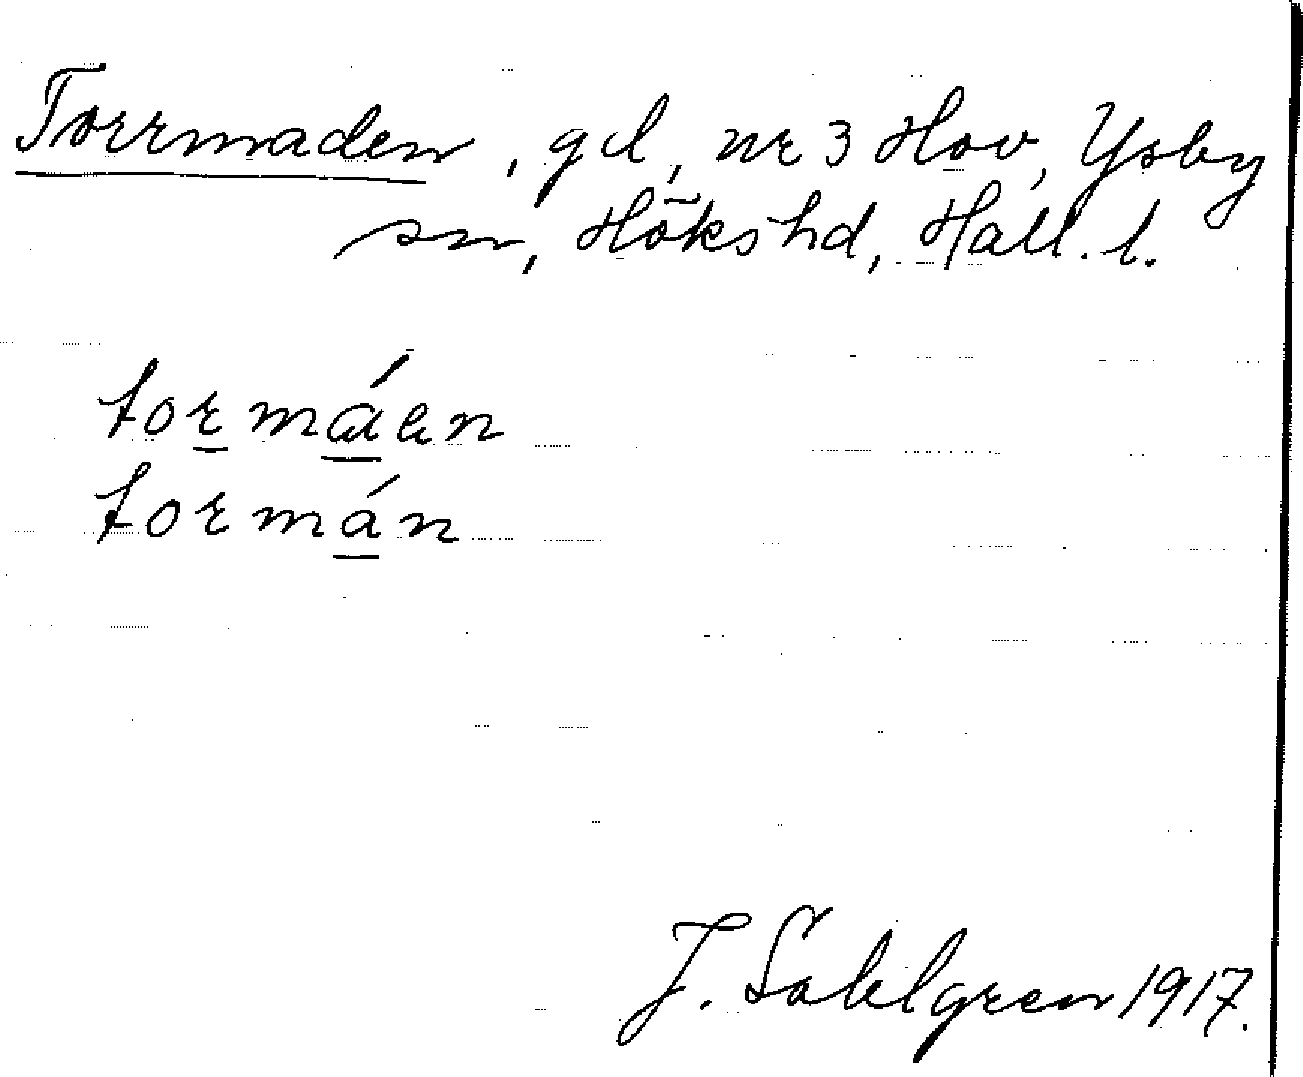 Torrmaden, gd, nr 3 Hov, Ysby
sn, Höks hd, Hall. l.
tormáen
tormán
J. Sahlgren 1917.